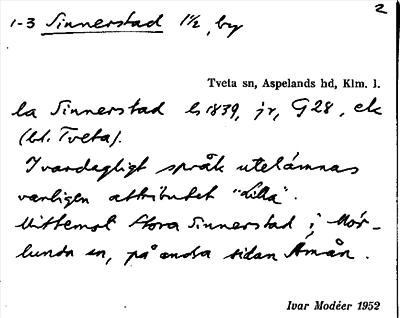 2
1-3 Sinnerstad 1½, by
Tveta sn, Aspelands hd, Klm. l.
La Sinnerstad Ls 1839, jr, G28, ek
(bl. Tveta).
I vardagligt språk utelämnas
vanligen attributet "Lilla".
Mittemot Stora Sinnerstad i Mör-
lunda sn, på andra sidan Åmån.
Ivar Modéer 1952